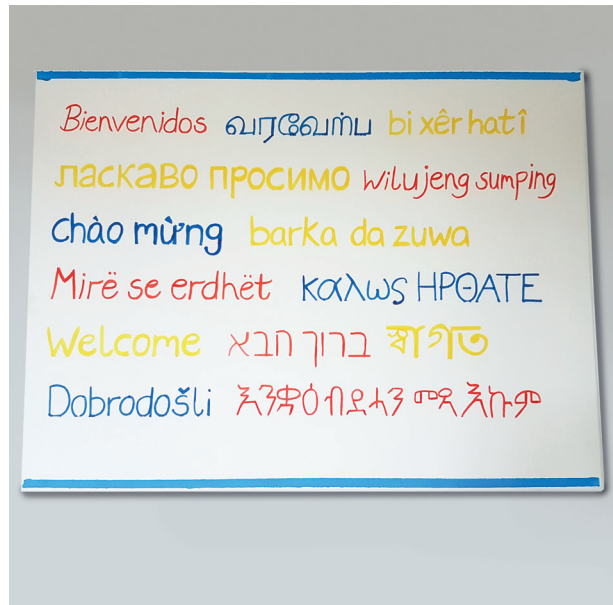 Bienvenidos வரவேற்பு bi xêr hatî
ласкаво просимо Wilujeng sumping
chào mừng barka da zuwa
Mirë se erdhët καλως ΗΡΘΑΤΕ
Welcome ברוך הבא স্বাগত
Dobrodošli እንቋዕ ብደሓን መጻእኩም